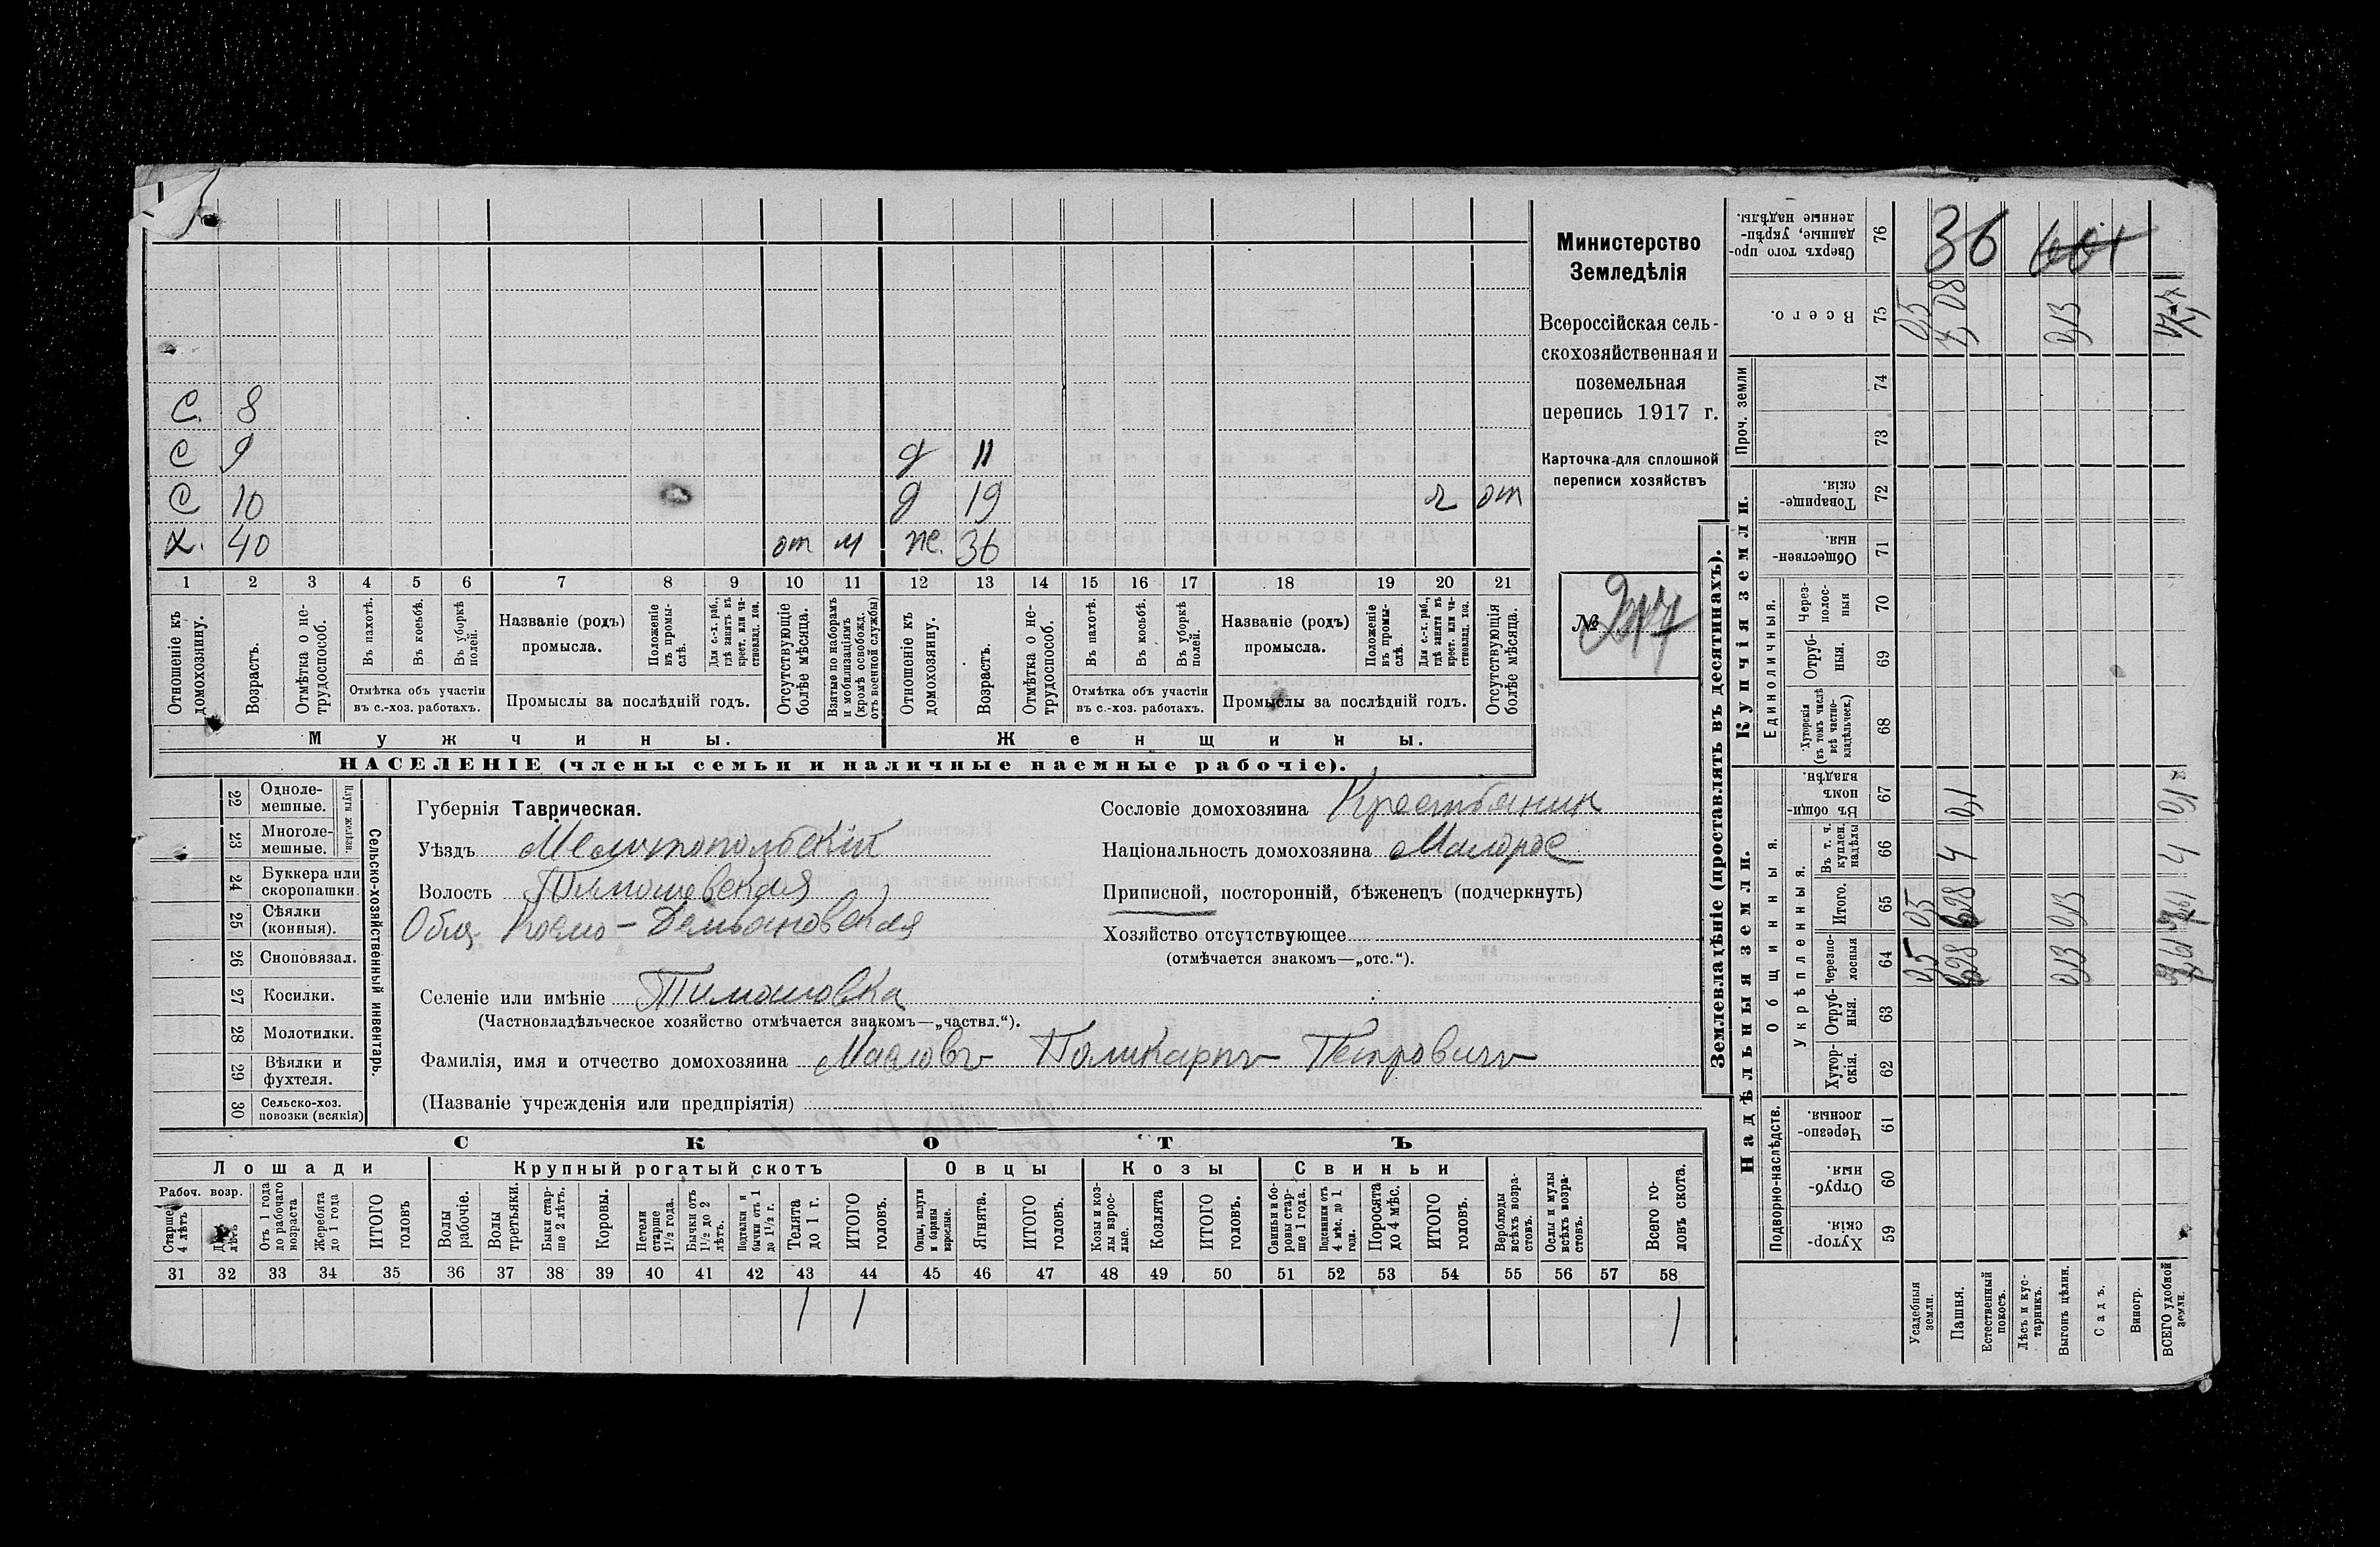 С. 8
С 9 д 11
С 10 д 19 ч от
х. 40 от м же. 36
1 2 3 4 5 6 7 8 9 10 11 12 13 14 15 16 17 18 19 20 21
Отношеніе къ домохозяину.
Возрастъ.
Отмѣтка о нетрудоспособ.
Въ пахотѣ.
Въ косьбѣ.
Въ уборкѣ полей.
Отмѣтка объ участіи въ с.-хоз. работахъ.
Названіе (родъ) промысла.
Положеніе въ промыслѣ.
Для с.-х. раб., гдѣ занятъ въ крест. или частновлад. хоз.
Промыслы за послѣдній годъ.
Отсутствующіе болѣе мѣсяца.
Взятые по наборамъ и мобилизаціямъ (кромѣ освобожд. отъ военной службы)
Отношеніе къ домохозяину.
Возрастъ.
Отмѣтка о нетрудоспособ.
Въ пахотѣ.
Въ косьбѣ.
Въ уборкѣ полей.
Отмѣтка объ участіи въ с.-хоз. работахъ.
Названіе (родъ) промысла.
Положеніе въ промыслѣ.
Для с.-х. раб., гдѣ занята въ крест. или частновлад. хоз.
Промыслы за послѣдній годъ.
Отсутствующія болѣе мѣсяца.
Мужчины. Женщины.
НАСЕЛЕНІЕ (члены семьи и наличные наемные рабочіе).
Министерство
Земледѣлія
Всероссійская сель-
скохозяйственная и
поземельная
перепись 1917 г.
Карточка для сплошной
переписи хозяйствъ
№ 217
22 Одноле-мешные.
23 Многоле-мешные.
Плуги желѣзн.
24 Буккера или скоропашки.
25 Сѣялки (конныя).
26 Сноповязал.
27 Косилки.
28 Молотилки.
29 Вѣялки и фухтеля.
30 Сельско-хоз. повозки (всякія)
Сельско-хозяйственный инвентарь.
Губернія Таврическая.
Уѣздъ Мелитопольскій
Волость Тимошевская
Общ. Космо-Демьяновская
Селеніе или имѣніе Тимошовка
(Частновладѣльческое хозяйство отмѣчается знакомъ—„частвл.“).
Фамилія, имя и отчество домохозяина Масловъ Поликарпъ Петровичъ
(Названіе учрежденія или предпріятія)
Сословіе домохозяина Крестьянин
Національность домохозяина Малорос
Приписной, посторонній, бѣженецъ (подчеркнуть)
Хозяйство отсутствующее
(отмѣчается знакомъ—„отс.“).
СКОТЪ
Лошади Крупный рогатый скотъ Овцы Козы Свиньи
Рабоч. возр.
Старше 4 лѣтъ
Отъ 1 года до рабочаго возраста
Жеребята до 1 года
ИТОГО головъ
Волы рабочіе.
Волы третьяки.
Быки старше 2 лѣтъ.
Коровы.
Нетели старше 1½ года.
Бычки отъ 1½ до 2 лѣтъ.
Подтелки и бычки отъ 1 до 1½ г.
Телята до 1 г.
ИТОГО головъ.
Овцы, валухи и бараны взрослые.
Ягнята.
ИТОГО головъ.
Козы и козлы взрослые.
Козлята
ИТОГО головъ.
Свиньи и боровы старше 1 года.
Подсвинки отъ 4 мѣс. до 1 года.
Поросята до 4 мѣс.
ИТОГО головъ.
Верблюды всѣхъ возрастовъ.
Ослы и мулы всѣхъ возрастовъ.
Всего головъ скота.
31 32 33 34 35 36 37 38 39 40 41 42 43 44 45 46 47 48 49 50 51 52 53 54 55 56 57 58
1 1 1
Землевладѣніе (проставлять въ десятинахъ).
Надѣльныя земли. Купчія земли. Проч. земли
Подворно-наслѣдств.
Общинныя.
Укрѣпленныя.
Единоличныя.
59 Хуторскія.
60 Отрубныя.
61 Черезполосныя.
62 Хуторскія.
63 Отрубныя.
64 Черезполосныя
65 Итого.
66 Въ т. ч. куплен. надѣлы
67 Въ общинномъ владѣн.
68 Хуторскія (въ томъ числѣ всѣ частновладѣльческ.)
69 Отрубныя.
70 Черезполосныя
71 Общественныя.
72 Товарищескія.
73
74
75 Всего.
76 Сверхъ того проданные, укрѣпленные надѣлы.
Усадебныя земли. 0,5 0,5 0,5
Пашня. 4 0,1 7,08
Естественный покосъ.
Лѣсъ и кустарникъ.
Выгонъ цѣлин. 0,13 0,13 0,13
Садъ.
Виногр.
ВСЕГО удобной земли. 4 0,1
36